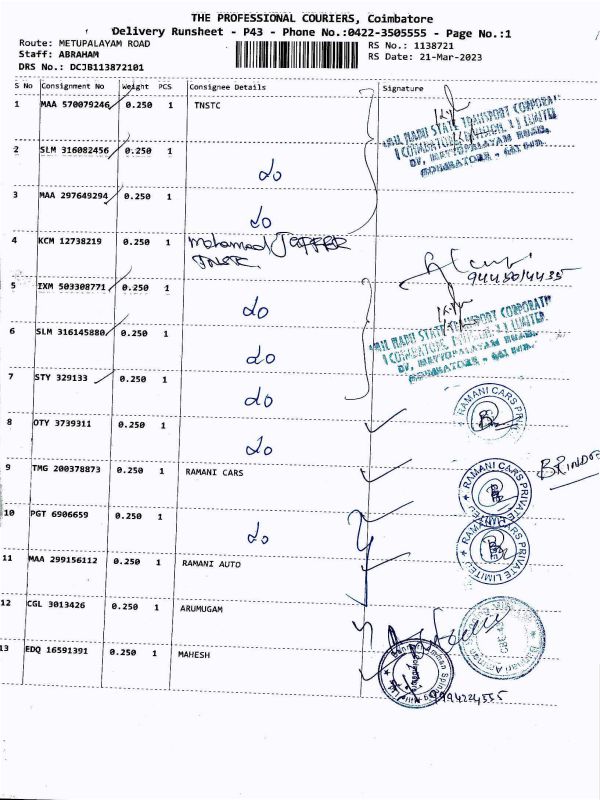 THE PROFESSIONAL COURIERS, Coimbatore
Delivery Runsheet - P43 - Phone No.:0422-3505555 - Page No.:1
Route: METUPALAYAM ROAD RS No.: 1138721
Staff: ABRAHAM RS Date: 21-Mar-2023
DRS No.: DCJB113872101
S No Consignment No Weight PCS Consignee Details Signature
1 MAA 570079246 0.250 1 TNSTC
TAMIL NADU STATE TRANSPORT CORPORATION
2 SLM 316082456 0.250 1 do
3 MAA 297649294 0.250 1 do
4 KCM 12738219 0.250 1 Mohamed
TNSTC
5 IXM 503308771 0.250 1 do
6 SLM 316145880 0.250 1 do
TAMIL NADU STATE TRANSPORT CORPORATION
7 STY 329133 0.250 1 do
RAMANI CARS
8 OTY 3739311 0.250 1 do
9 TMG 200378873 0.250 1 RAMANI CARS
RAMANI CARS PRIVATE LIMITED
10 PGT 6906659 0.250 1 do
RAMANI CARS PRIVATE LIMITED
11 MAA 299156112 0.250 1 RAMANI AUTO
12 CGL 3013426 0.250 1 ARUMUGAM
13 EDQ 16591391 0.250 1 MAHESH
9994224555